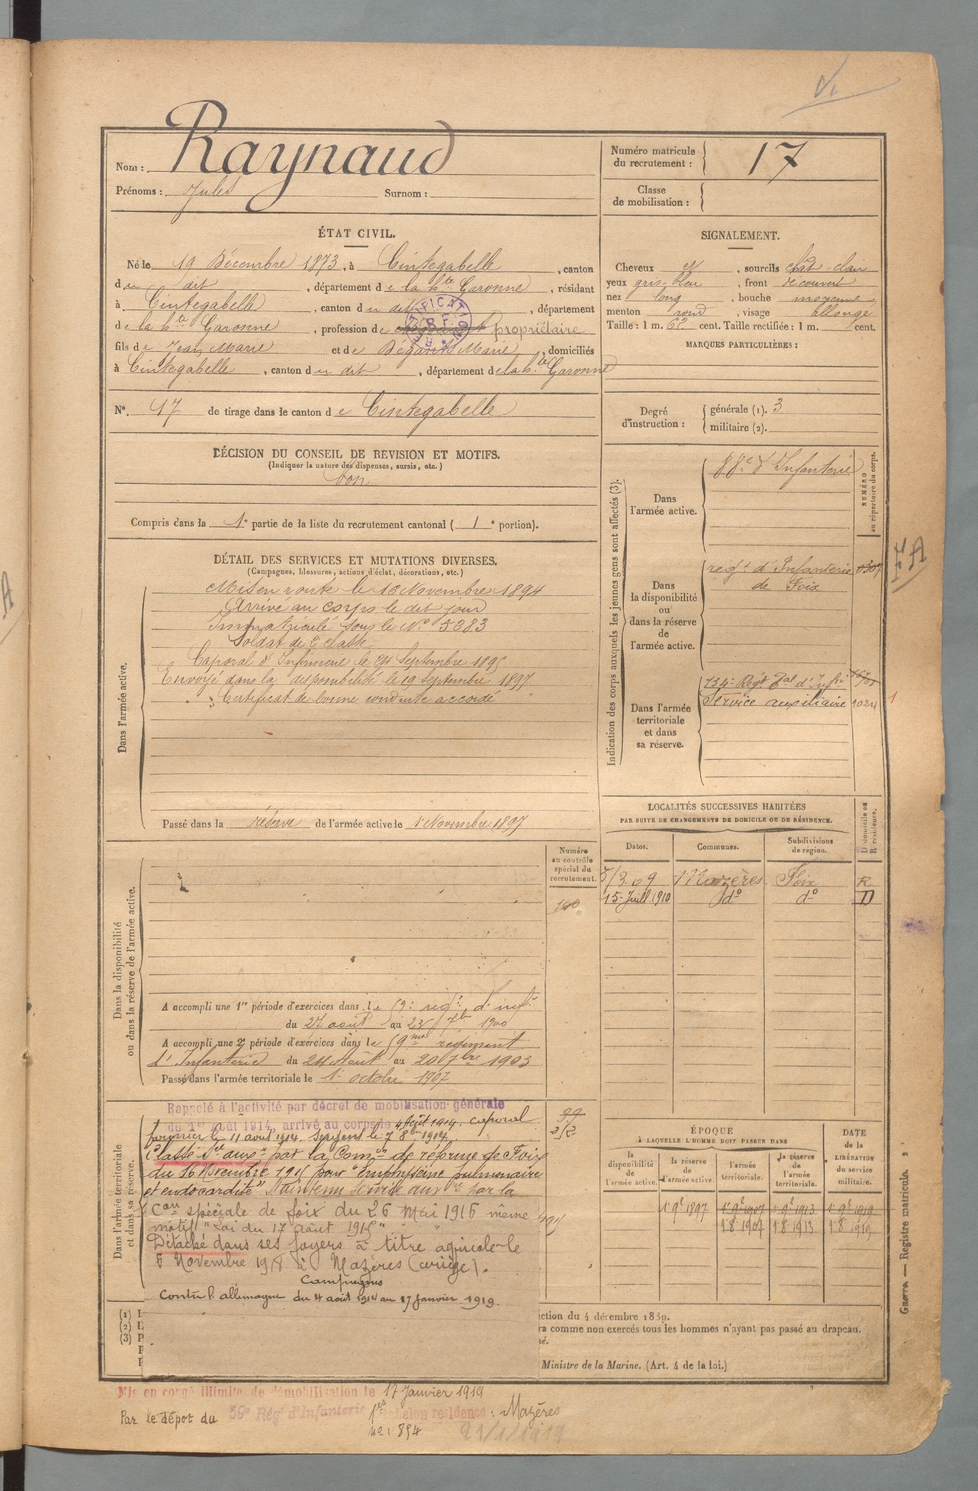 Nom : Raynaud
Prénoms : Jules Surnom :
Numéro matricule
du recrutement : 17
Classe
de mobilisation :
ÉTAT CIVIL.
Né le 19 Décembre 1873, à Cintegabelle, canton
d u dit, département d e la hte Garonne, résidant
à Cintegabelle, canton d u dit, département
d e la hte Garonne, profession de propriétaire
fils de Jean Marie et de Marie, domiciliés
à Cintegabelle, canton d u dit, département de la hte Garonne
N° 17 de tirage dans le canton d e Cintegabelle
SIGNALEMENT.
Cheveux et, sourcils chât-clair
yeux gris bleu, front découvert
nez long, bouche moyenne
menton rond, visage allongé
Taille : 1 m. cent. Taille rectifiée : 1 m. cent.
MARQUES PARTICULIÈRES :
Degré
d'instruction :
générale (1). 3
militaire (2).
DÉCISION DU CONSEIL DE REVISION ET MOTIFS.
(Indiquer la nature des dispenses, sursis, etc.)
bon
Compris dans la 1e partie de la liste du recrutement cantonal ( 1 e portion).
DÉTAIL DES SERVICES ET MUTATIONS DIVERSES.
(Campagnes, blessures, actions d'éclat, décorations, etc.)
Dans l'armée active.
Mis en route le 16 Novembre 1894
Arrivé au corps le dit jour
Immatriculé sous le N° 5283
Soldat de 2e classe
Caporal d'Infirmerie le 24 Septembre 1895
Envoyé dans la disponibilité le 19 Septembre 1897
Certificat de bonne conduite accordé
Passé dans la réserve de l'armée active le 1 Novembre 1897
Indication des corps auxquels les jeunes gens sont affectés (3).
NUMÉRO
au répertoire du corps.
Dans
l'armée active.
88e d'Infanterie
Dans
la disponibilité
ou
dans la réserve
de
l'armée active.
regt d'Infanterie
de Foix
Dans l'armée
territoriale
et dans
sa réserve.
134e Regt Tal d'Infie
Service auxiliaire 1024
FA
LOCALITÉS SUCCESSIVES HABITÉES
PAR SUITE DE CHANGEMENTS DE DOMICILE OU DE RÉSIDENCE.
Dates. Communes. Subdivisions
de région.
D domicile ou
R résidence.
5/3 09 Mazères Foix R
15 Juill 1910 d° d° D
Dans la disponibilité
ou dans la réserve de l'armée active.
Numéro
au contrôle
spécial du
recrutement.
A accompli une 1re période d'exercices dans le 59e regt d'infie
du 27 août au 23 7bre 1900
A accompli une 2e période d'exercices dans le 59me régiment
d'Infanterie du 24 Août au 20 7bre 1903
Passé dans l'armée territoriale le 1 octobre 1907
Dans l'armée territoriale
et dans sa réserve.
Rappelé à l'activité par décret de mobilisation générale
du 1er Août 1914, arrivé au corps le 4 Août 1914. Caporal
fourrier le 11 août 1914. Sergent le 7 8bre 1914.
Classé Sce auxe par la Comon de réforme de Foix
du 16 Novembre 1915 pour "emphysème pulmonaire
et endocardite" Maintenu service auxre par la
Con spéciale de foix du 26 Mai 1916 même
motif "Loi du 17 Août 1915"
Détaché dans ses foyers à titre agricole le
5 Novembre 1918 à Mazères (ariège).
Campagnes
Contre l'allemagne du 4 août 1914 au 17 janvier 1919.
ÉPOQUE
À LAQUELLE L'HOMME DOIT PASSER DANS
la
disponibilité
de
l'armée active.
la réserve
de
l'armée active.
l'armée
territoriale.
la réserve
de
l'armée
territoriale.
DATE
de la
LIBÉRATION
du service
militaire.
1 9e 1897 1 9e 1907 1 9e 1913 1 9e 1919
1 8 1907 1 8 1913 1 8 1919
(1)
(2)
(3)
ction du 4 décembre 1889.
ra comme non exercés tous les hommes n'ayant pas passé au drapeau.
Ministre de la Marine. (Art. 4 de la loi.)
Guerre. — Registre matricule. 2
Mis en congé illimité de démobilisation le 17 Janvier 1919
Par le dépot du 59e Régt d'Infanterie échelon résidence : Mazères
21/1/1919